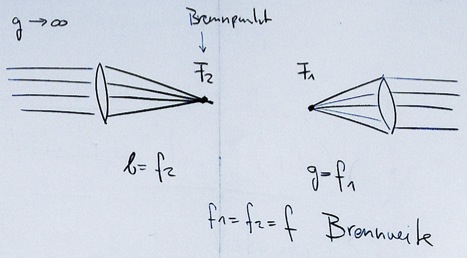 g → ∞
Brennpunkt
F₂
F₁
b = f₂
g = f₁
f₁ = f₂ = f Brennweite